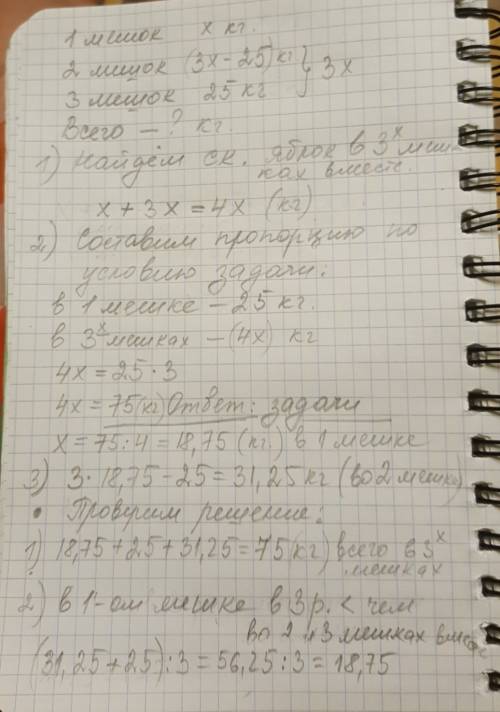 1 мешок х кг.
2 мишок (3х-25) кг } 3х
3 мешок 25 кг
Всего - ? кг.
1) Найдём ск. яблок в 3х меш-
ках вместе.
х + 3х = 4х (кг)
2) Составим пропорцию по
условию задачи:
в 1 мешке - 25 кг.
в 3х мешках - (4х) кг
4х = 25 · 3
4х = 75 (кг) Ответ: задачи
х = 75 : 4 = 18,75 (кг.) в 1 мешке
3) 3 · 18,75 - 25 = 31,25 кг (во 2 мешке)
• Проверим решение:
1) 18,75 + 25 + 31,25 = 75 (кг) всего в 3х
мешках
2) в 1-ом мешке в 3 р. < чем
во 2 и 3 мешках вместе
(31,25 + 25) : 3 = 56,25 : 3 = 18,75